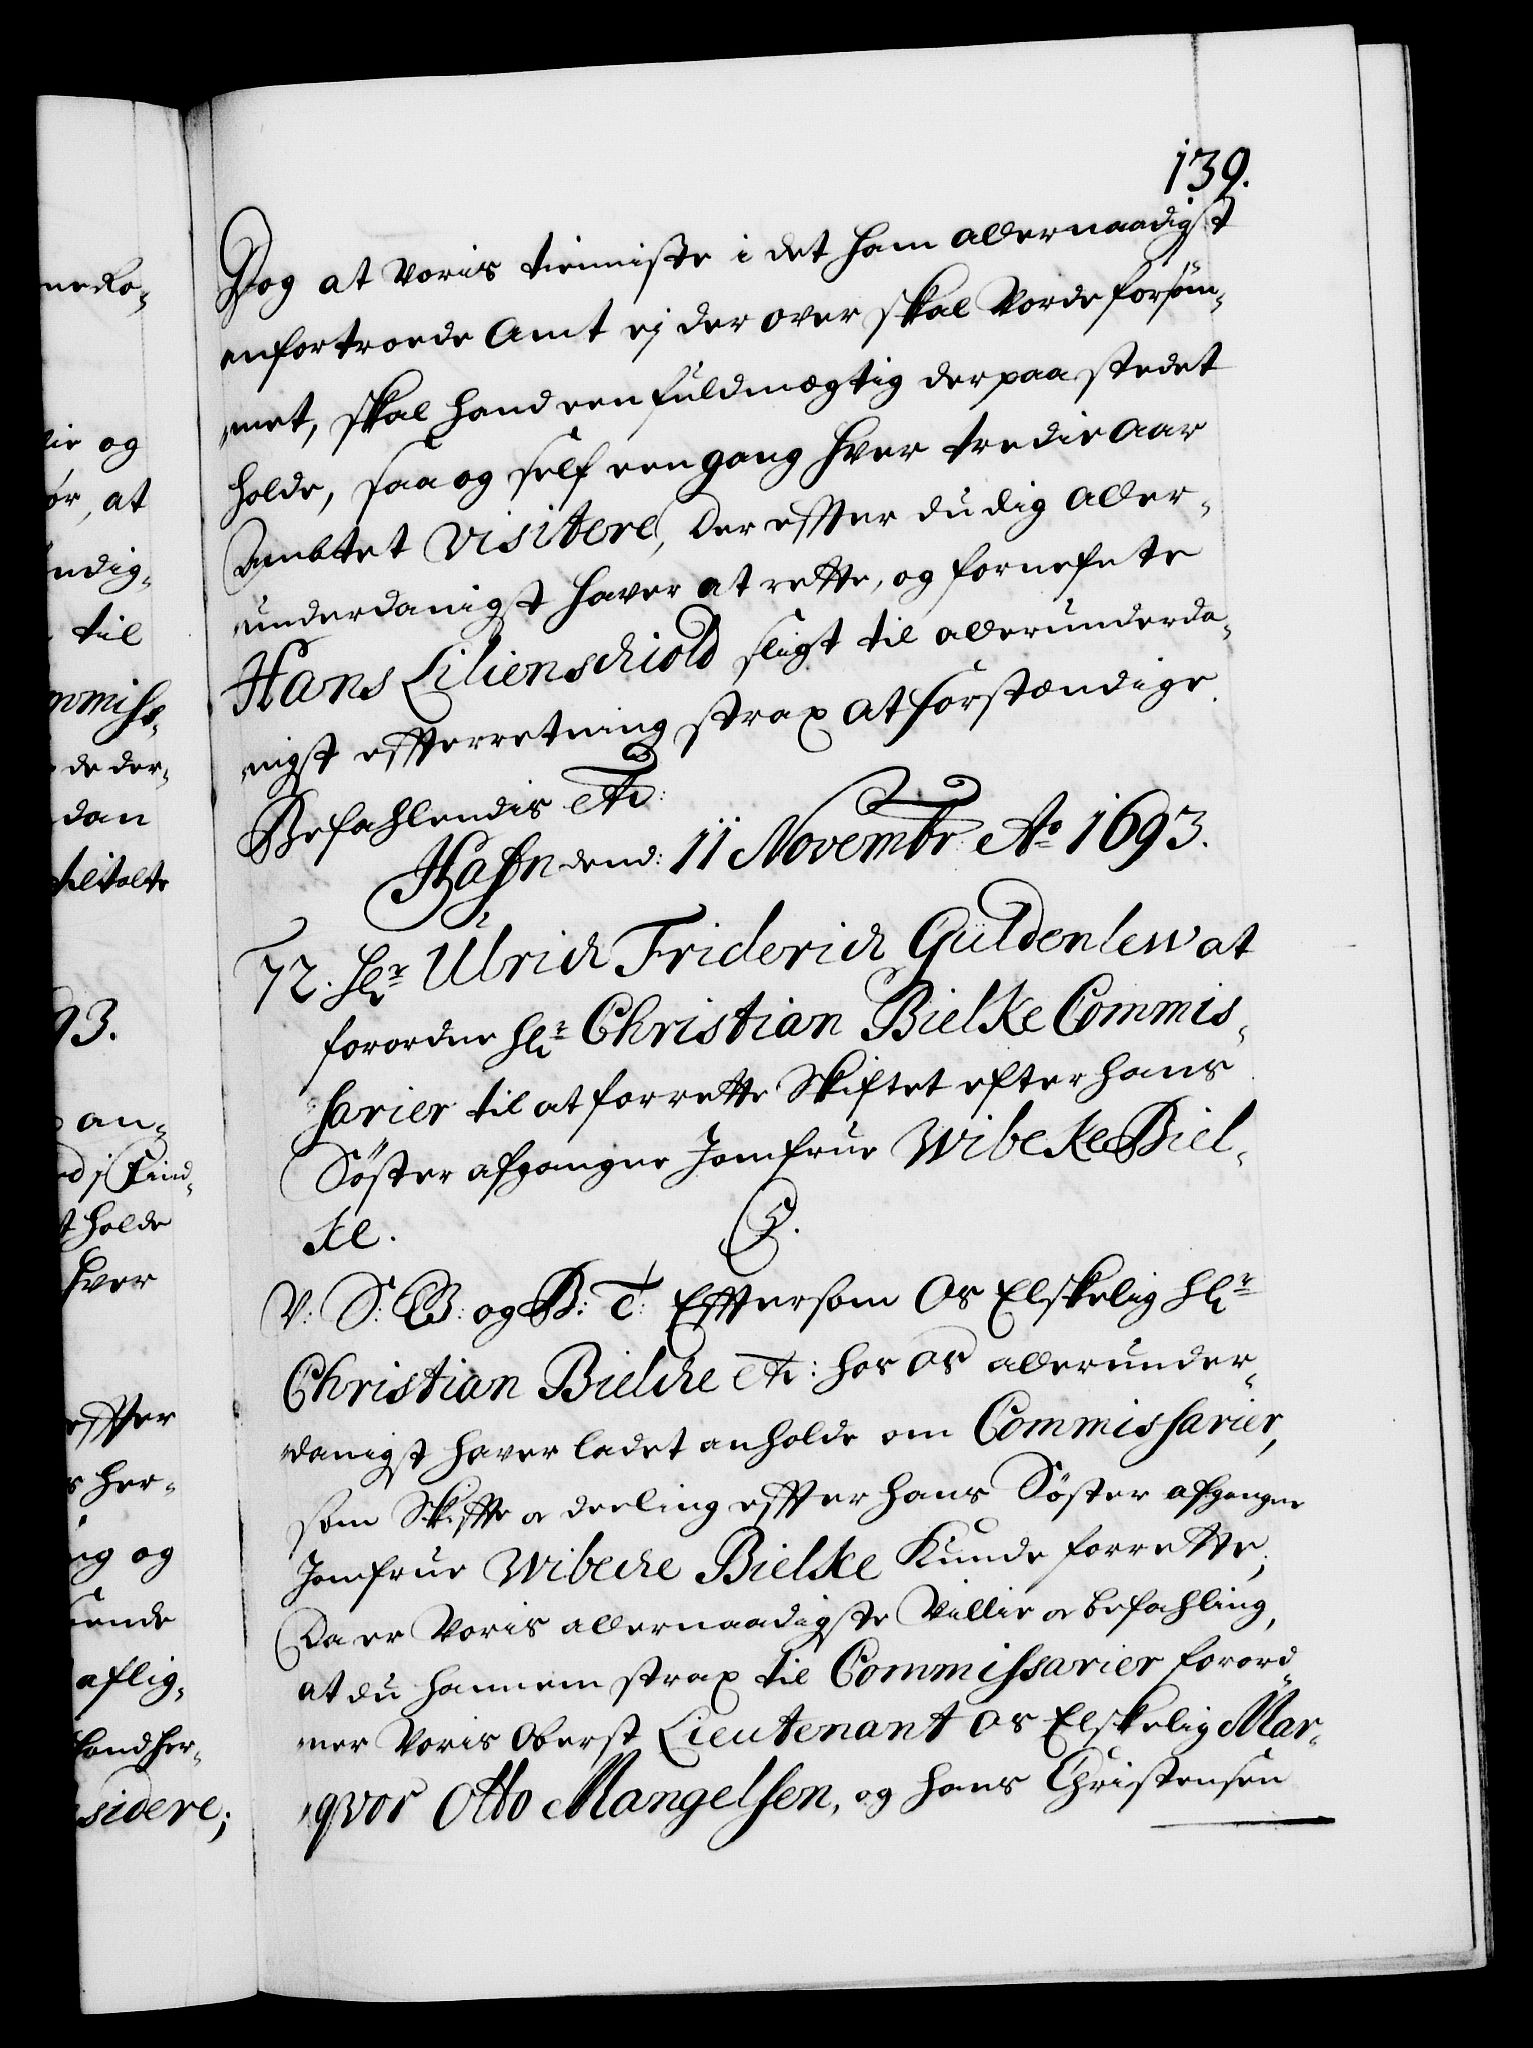 139.
Dog at Voris tienniste i det ham allernaadigst
anfortroede Amt ej der over skal Vorde forsöm-
met, skal hand een fuldmegtig der paa stedet
holde, saa og self een gang hver tredie Aar
Ambtet Visitere, der effter du dig aller-
underdanigst haver at rette, og fornefnte
Hans Lilienschiold sligt til allerunderda-
nigst effterretning strax at forstændige.
Befahlendis etc:
Hafn dend: 11 Novembr: Ao 1693.
72. Hr Ulrich Friderich Güldenlew at
forordne Hr Christian Bielke Commis-
sarier til at forrette Skiftet efter hans
Söster afgangne Jomfrue Wibeke Biel-
ke.
C5.
V: S: G: og B: T: Efftersom Os Elskelig Hr
Christian Bielche etc: hos os allerunder-
danigst haver ladet anholde om Commissarier,
som Skiffte a deeling effter hans Söster afgangne
Jomfrue Wibeche Bielke Kunde forrette;
Da er Voris allernaadigste Villie a befahling,
at du hannem strax til Commissarier forord-
ner Voris Oberst Lieutenant os Elskelig Mar-
qvor Otto Mangelsen, og Hans Christensen
neke-
vie og
ör, at
ndig-
til
mmiss-
de der-
dan
93.
an-
t holde
hver
effter
s her-
ng og
ende
aflig-
sidere;